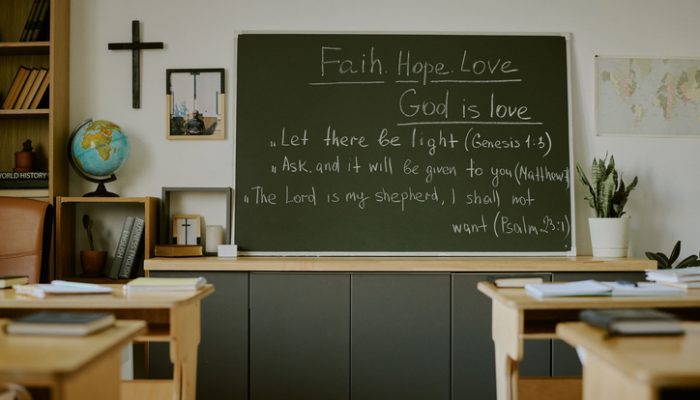 Faih. Hope. Love
God is love
" Let there be light (Genesis 1:3)
" Ask and it will be given to you (Natthew
" The Lord is my shepherd, I shall not
want (Psalm 23:1)
WORLD HISTORY